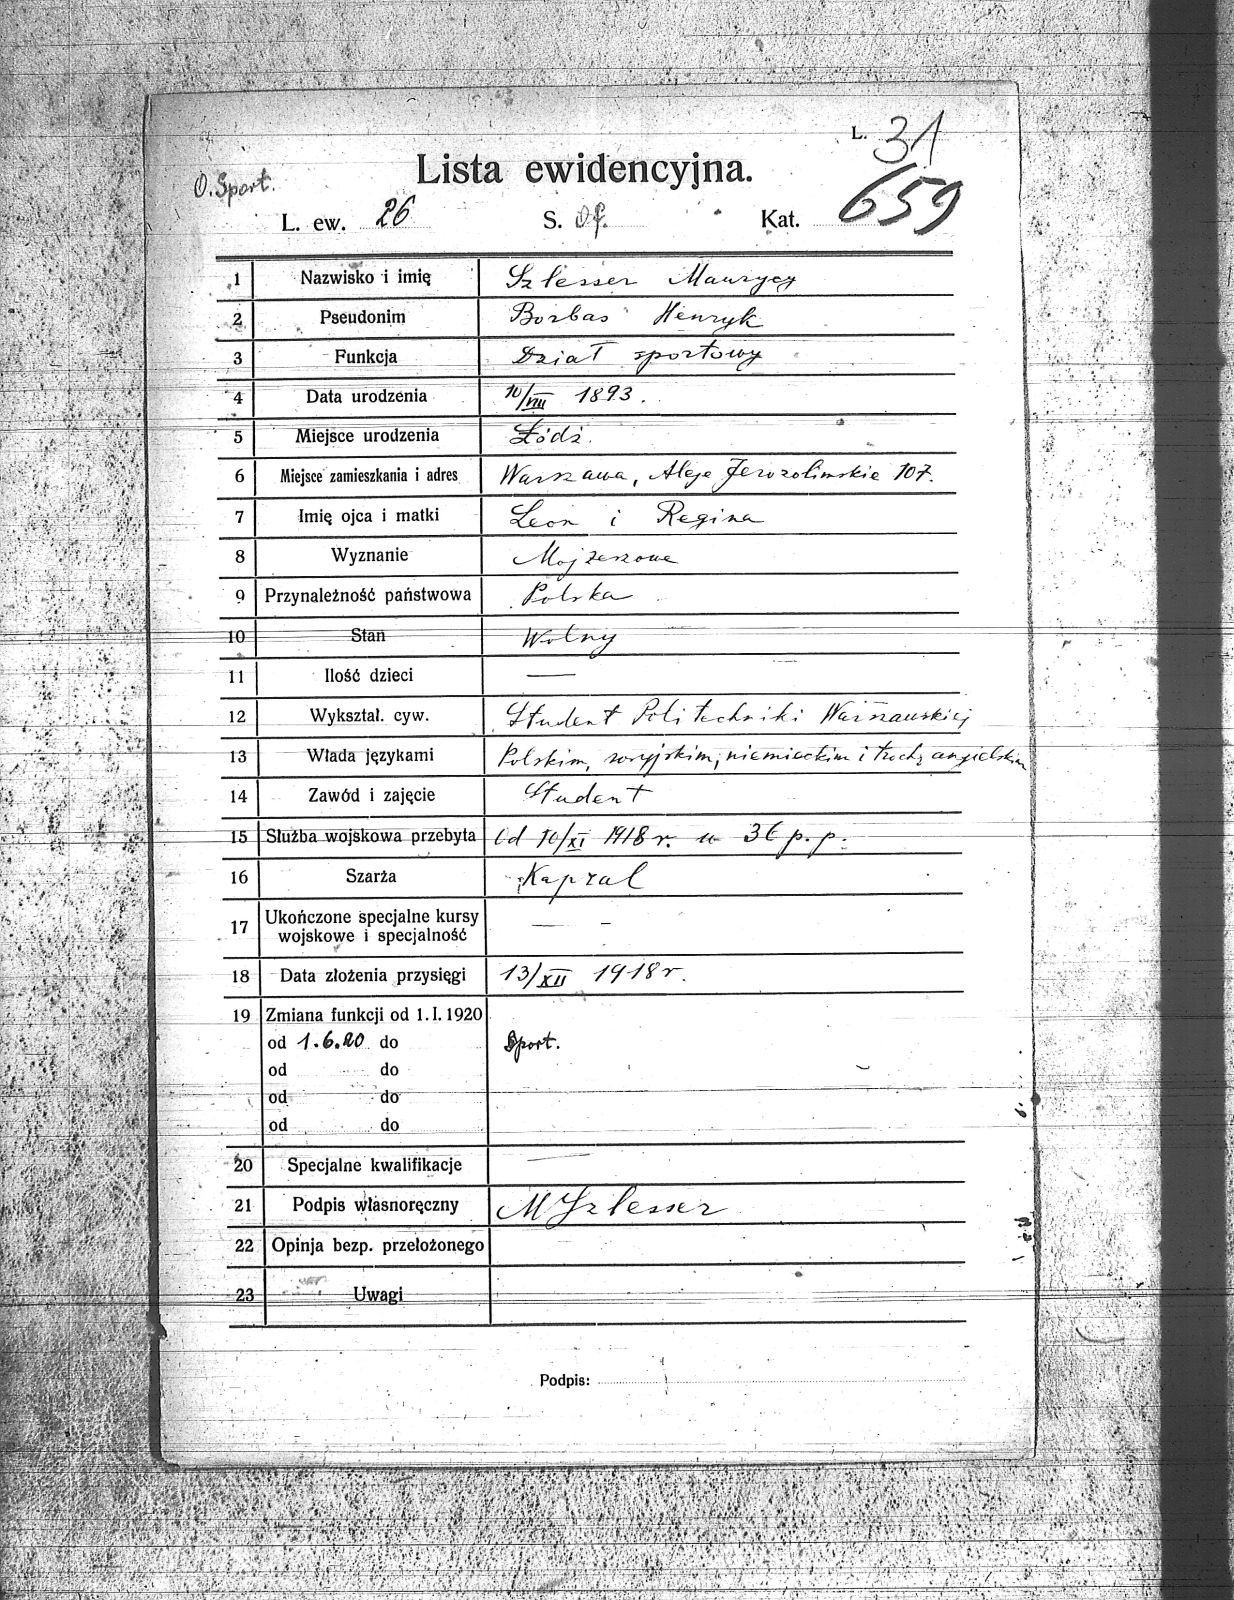 L. 31
O. Sport.
Lista ewidencyjna.
659
L. ew. 26 S. Of. Kat.
1 Nazwisko i imię Szlesser Maurycy
2 Pseudonim Borbas Henryk
3 Funkcja Dział sportowy
4 Data urodzenia 10/VIII 1893.
5 Miejsce urodzenia Łódź.
6 Miejsce zamieszkania i adres Warszawa, Aleje Jerozolimskie 107.
7 Imię ojca i matki Leon i Regina
8 Wyznanie Mojżeszowe
9 Przynależność państwowa Polska
10 Stan Wolny
11 Ilość dzieci —
12 Wykształ. cyw. Student Politechniki Warszawskiej
13 Włada językami Polskim, rosyjskim, niemieckim i trochę angielskim
14 Zawód i zajęcie Student
15 Służba wojskowa przebyta Od 10/XI 1918 r. w 36 p. p.
16 Szarża Kapral
17 Ukończone specjalne kursy
wojskowe i specjalność — –
18 Data złożenia przysięgi 13/XII 1918 r.
19 Zmiana funkcji od 1. I. 1920
od 1.6.20 do Sport.
od do
od do
od do
20 Specjalne kwalifikacje —
21 Podpis własnoręczny M Szlesser
22 Opinja bezp. przełożonego
23 Uwagi
Podpis: